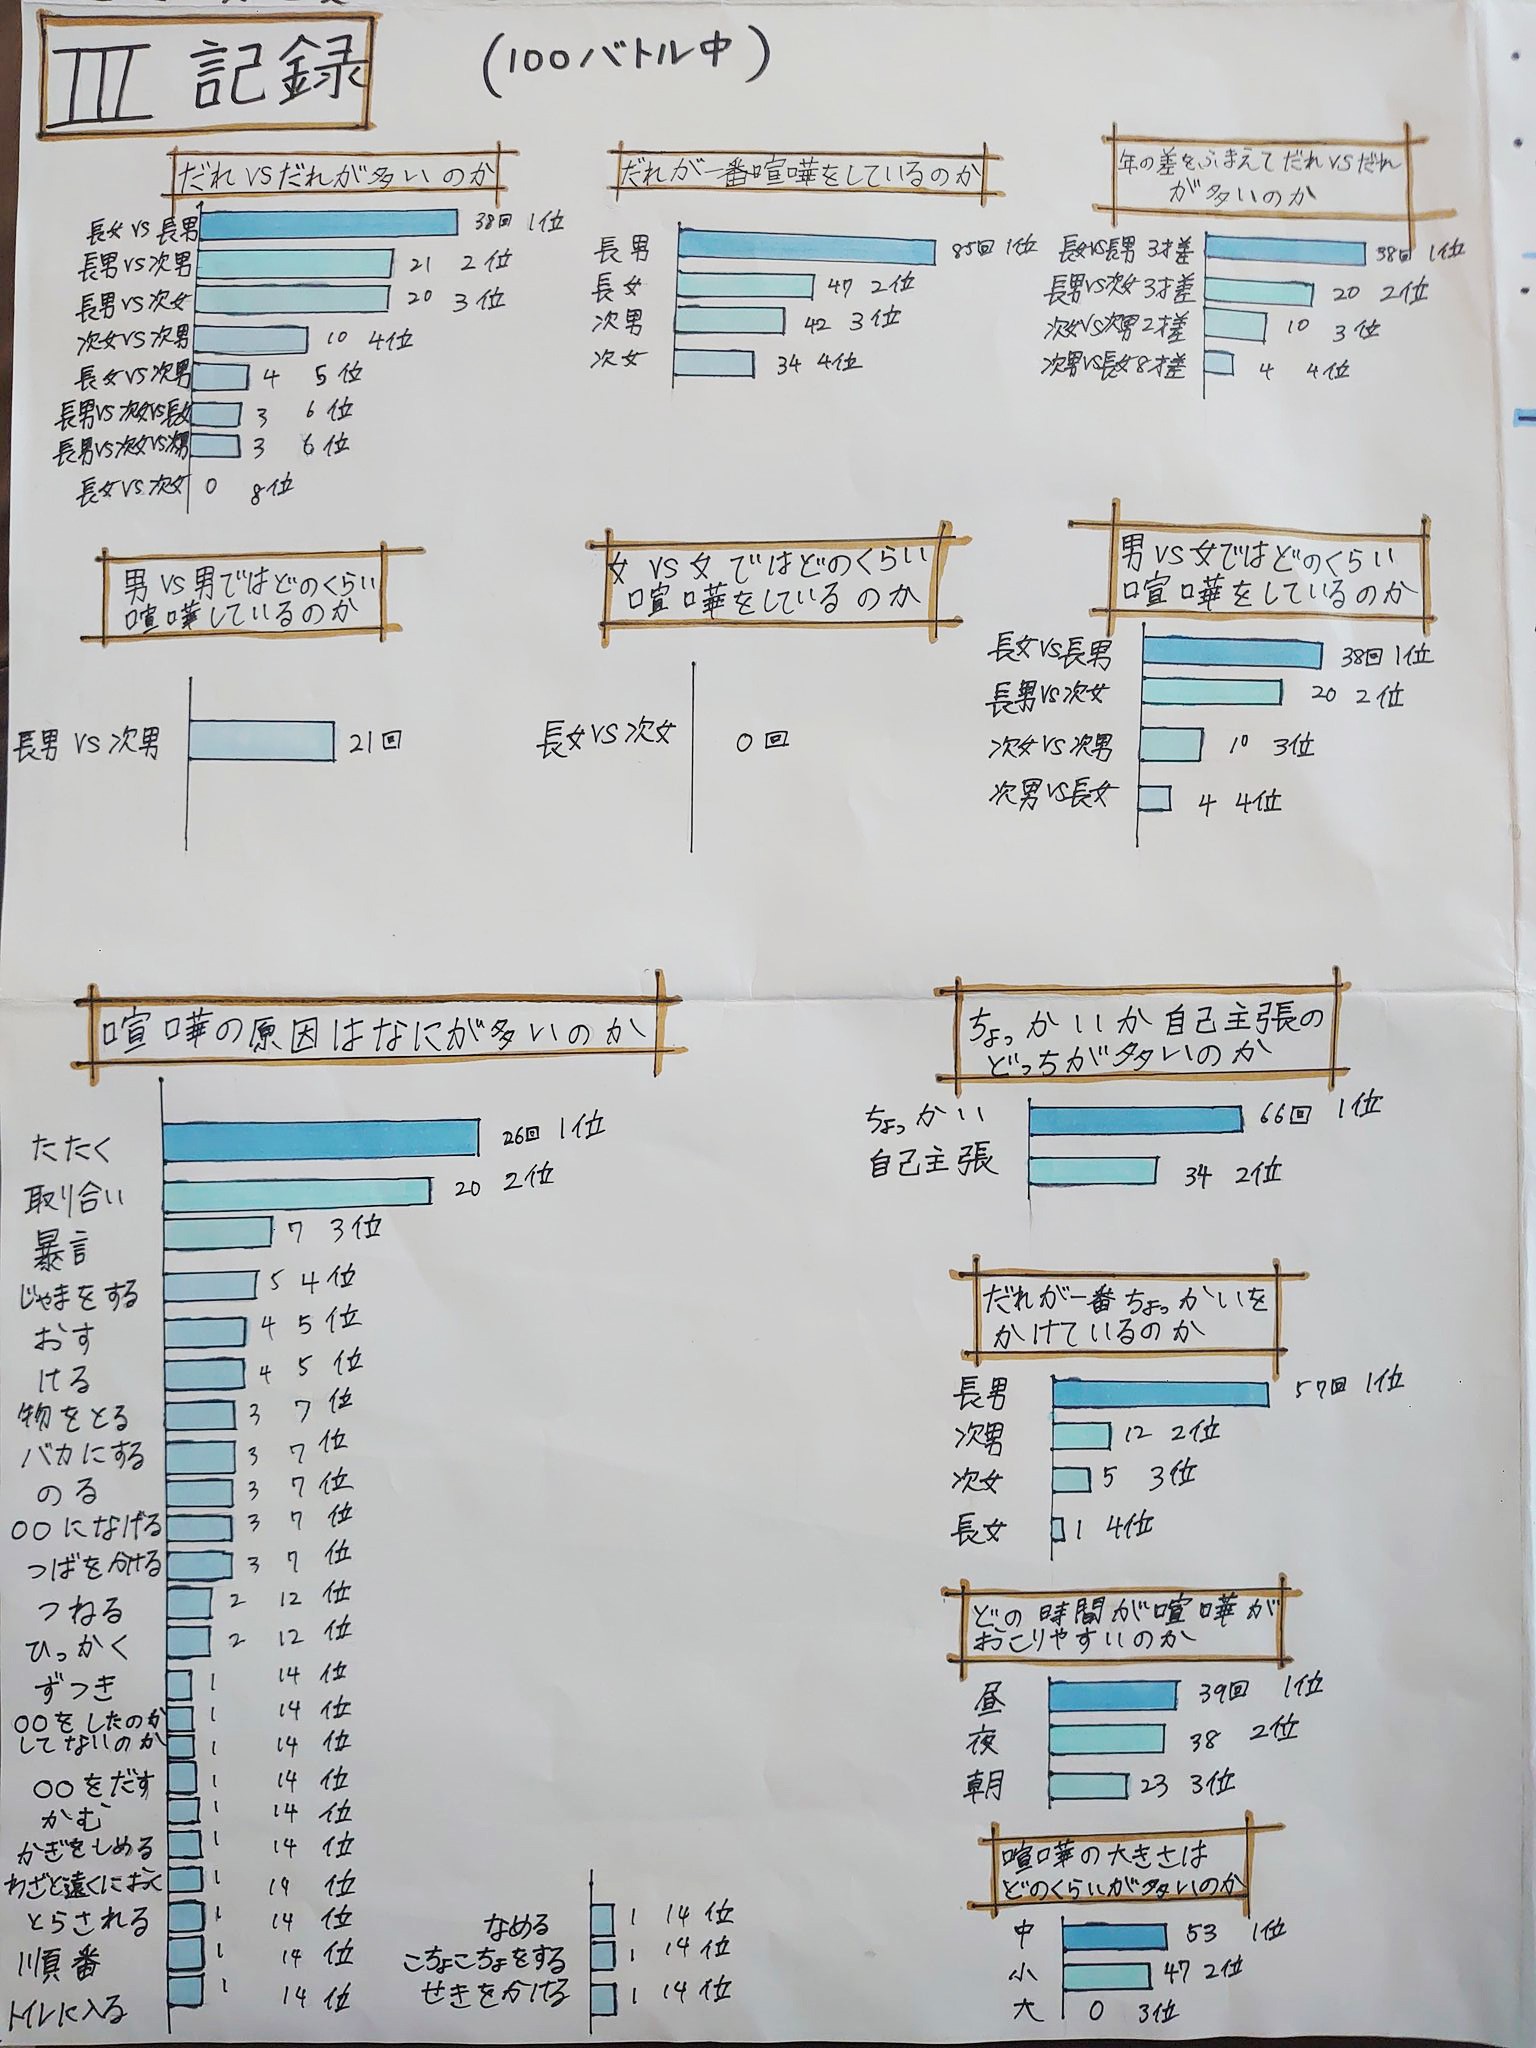 III 記録
(100バトル中)
だれVSだれが多いのか
長女VS長男 38回 1位
長男VS次男 21 2位
長男VS次女 20 3位
次女VS次男 10 4位
長女VS次男 4 5位
長男VS次女VS長女 3 6位
長男VS次女VS次男 3 6位
長女VS次女 0 8位
だれが一番喧嘩をしているのか
長男 85回 1位
長女 47 2位
次男 42 3位
次女 34 4位
年の差をふまえてだれVSだれ
が多いのか
長女VS長男 3才差 38回 1位
長男VS次女 3才差 20 2位
次女VS次男 2才差 10 3位
次男VS長女 8才差 4 4位
男VS男ではどのくらい
喧嘩しているのか
長男VS次男 21回
女VS女ではどのくらい
喧嘩をしているのか
長女VS次女 0回
男VS女ではどのくらい
喧嘩をしているのか
長女VS長男 38回 1位
長男VS次女 20 2位
次女VS次男 10 3位
次男VS長女 4 4位
喧嘩の原因はなにが多いのか
たたく 26回 1位
取り合い 20 2位
暴言 7 3位
じゃまをする 5 4位
おす 4 5位
ける 4 5位
物をとる 3 7位
バカにする 3 7位
のる 3 7位
〇〇になげる 3 7位
つばをかける 3 7位
つねる 2 12位
ひっかく 2 12位
ずつき 1 14位
〇〇をしたのか 1 14位
してないのか 1 14位
〇〇をだす 1 14位
かむ 1 14位
かぎをしめる 1 14位
わざと遠くにおく 1 14位
とらされる 1 14位
順番 1 14位
トイレに入る 1 14位
なめる 1 14位
こちょこちょをする 1 14位
せきをかける 1 14位
ちょっかいか自己主張の
どっちが多いのか
ちょっかい 66回 1位
自己主張 34 2位
だれが一番ちょっかいを
かけているのか
長男 57回 1位
次男 12 2位
次女 5 3位
長女 1 4位
どの時間が喧嘩が
おこりやすいのか
昼 39回 1位
夜 38 2位
朝 23 3位
喧嘩の大きさは
どのくらいが多いのか
中 53 1位
小 47 2位
大 0 3位